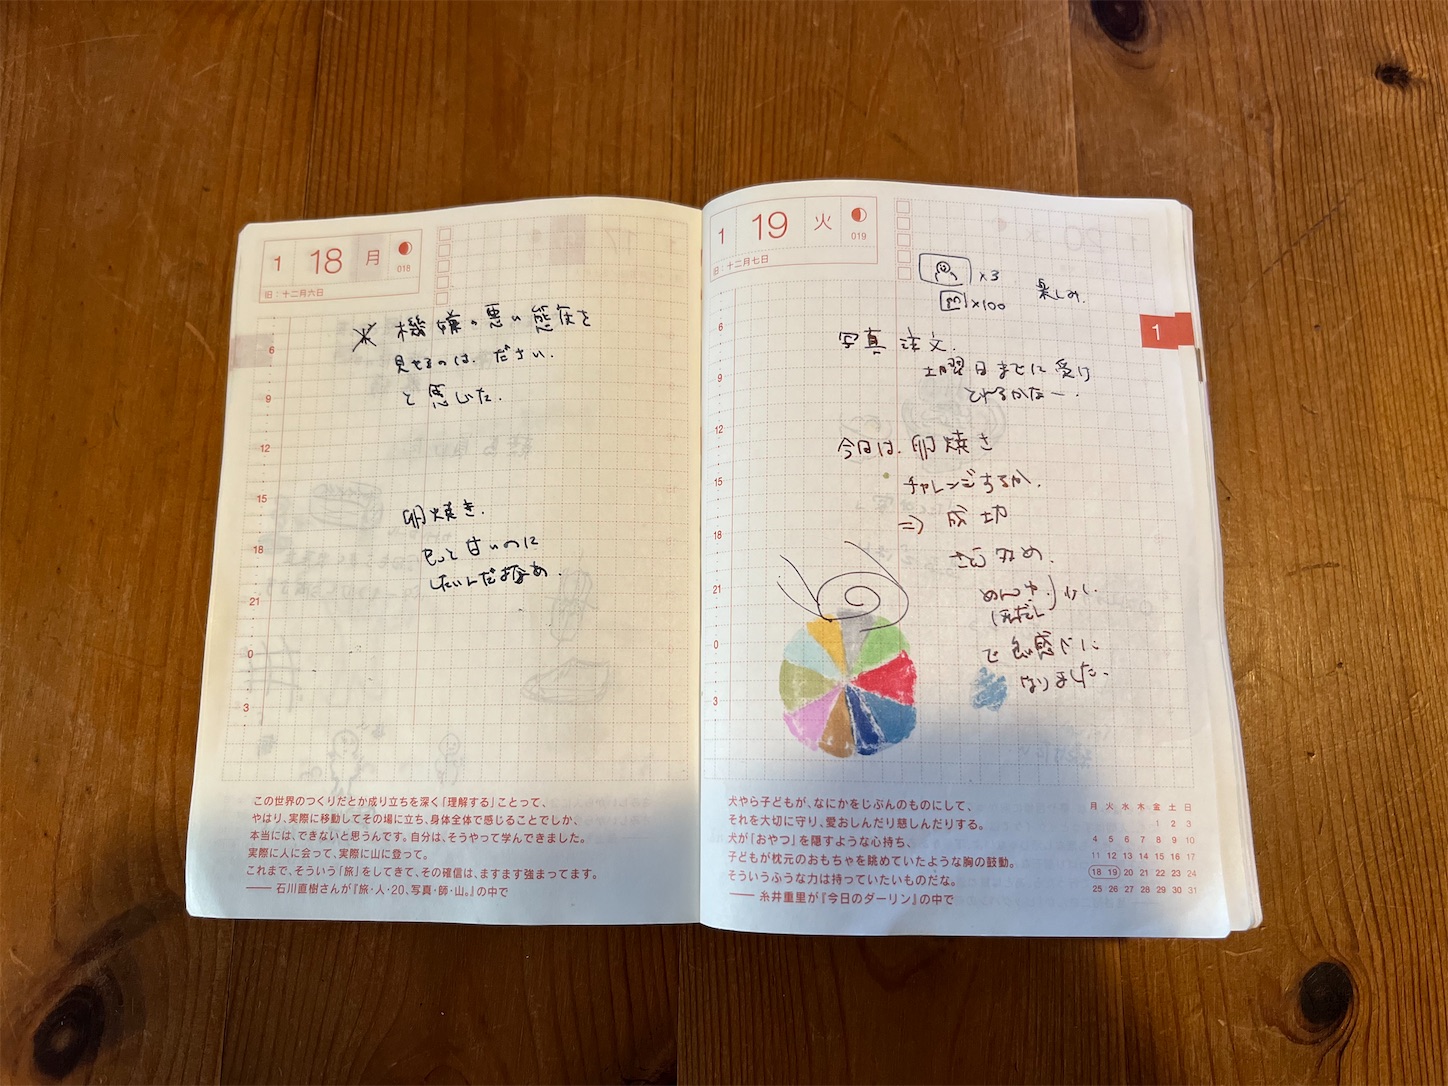 1 18 月
018
旧:十二月六日
※ 機嫌の悪い態度を
見せるのは、ださい、
と感じた。
卵焼き、
もっと甘いのに
したいんだよなぁ。
6
9
12
15
18
21
0
3
この世界のつくりだとか成り立ちを深く「理解する」ことって、
やはり、実際に移動してその場に立ち、身体全体で感じることでしか、
本当には、できないと思うんです。自分は、そうやって学んできました。
実際に人に会って、実際に山に登って。
これまで、そういう「旅」をしてきて、その確信は、ますます強まってます。
—— 石川直樹さんが『旅・人・20、写真・師・山。』の中で
1 19 火
019
旧:十二月七日
×3
×100
楽しみ。
写真注文。
土曜日までに受け
とれるかなー。
今日は、卵焼き
チャレンジするか。
⇒ 成功
さとう多め、
めんつゆ
ほんだし
少し
で
になりました。
6
9
12
15
18
21
0
3
1
犬やら子どもが、なにかをじぶんのものにして、
それを大切に守り、愛おしんだり慈しんだりする。
犬が「おやつ」を隠すような心持ち、
子どもが枕元のおもちゃを眺めていたような胸の鼓動。
そういうふうな力は持っていたいものだな。
—— 糸井重里が『今日のダーリン』の中で
月 火 水 木 金 土 日
1 2 3
4 5 6 7 8 9 10
11 12 13 14 15 16 17
18 19 20 21 22 23 24
25 26 27 28 29 30 31